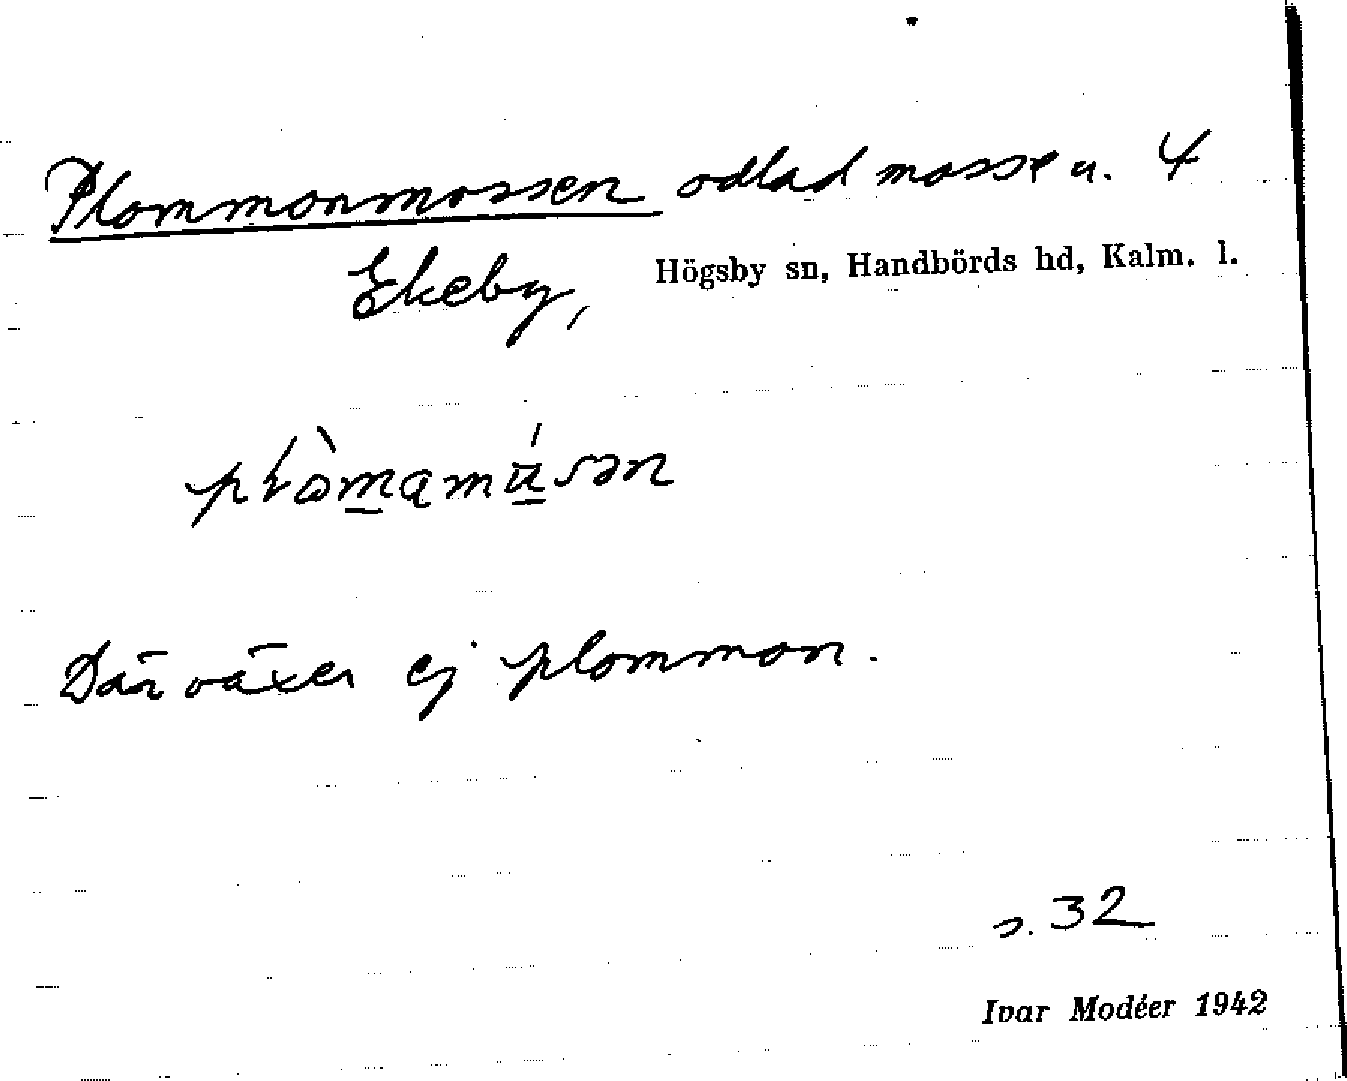 Plommonmossen odlad mosse u. 4
Ekeby, Högsby sn, Handbörds hd, Kalm. l.
Där växer ej plommon.
s. 32
Ivar Modéer 1942